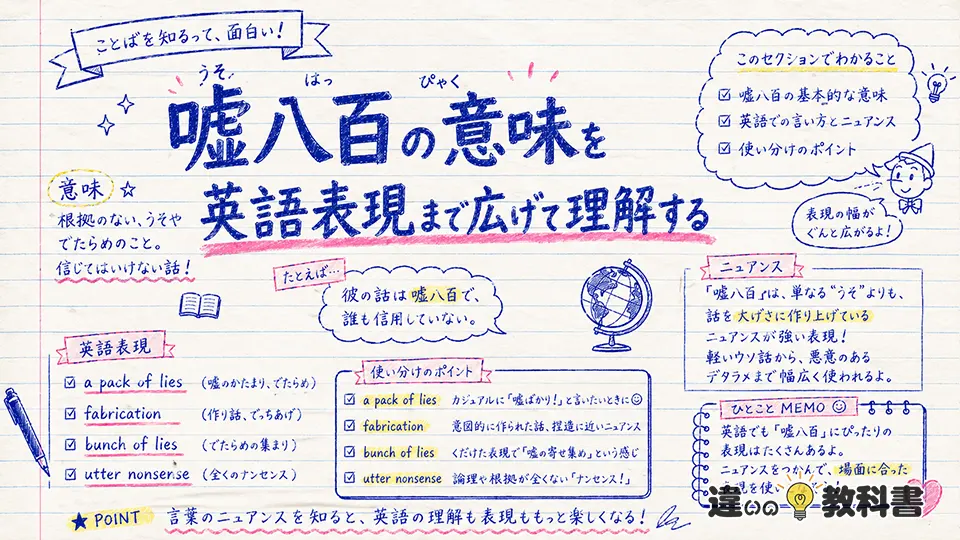 ことばを知るって、面白い!
うそ はっ ぴゃく
嘘八百の意味を
英語表現まで広げて理解する
このセクションでわかること
嘘八百の基本的な意味
英語での言い方とニュアンス
使い分けのポイント
表現の幅が
ぐんと広がるよ!
意味
根拠のない、うそや
でたらめのこと。
信じてはいけない話!
たとえば…
彼の話は嘘八百で、
誰も信用していない。
ニュアンス
「嘘八百」は、単なる“うそ”よりも、
話を大げさに作り上げている
ニュアンスが強い表現!
軽いウソ話から、悪意のある
デタラメまで幅広く使われるよ。
英語表現
a pack of lies (嘘のかたまり、でたらめ)
fabrication (作り話、でっちあげ)
bunch of lies (でたらめの集まり)
utter nonsense (全くのナンセンス)
使い分けのポイント
a pack of lies カジュアルに「嘘ばかり!」と言いたいときに
fabrication 意図的に作られた話、捏造に近いニュアンス
bunch of lies くだけた表現で「嘘の寄せ集め」という感じ
utter nonsense 論理や根拠が全くない「ナンセンス!」
ひとこと MEMO
英語でも「嘘八百」にぴったりの
表現はたくさんあるよ。
ニュアンスをつかんで、場面に合った
表現を使い
違いの教科書
POINT 言葉のニュアンスを知ると、英語の理解も表現ももっと楽しくなる!